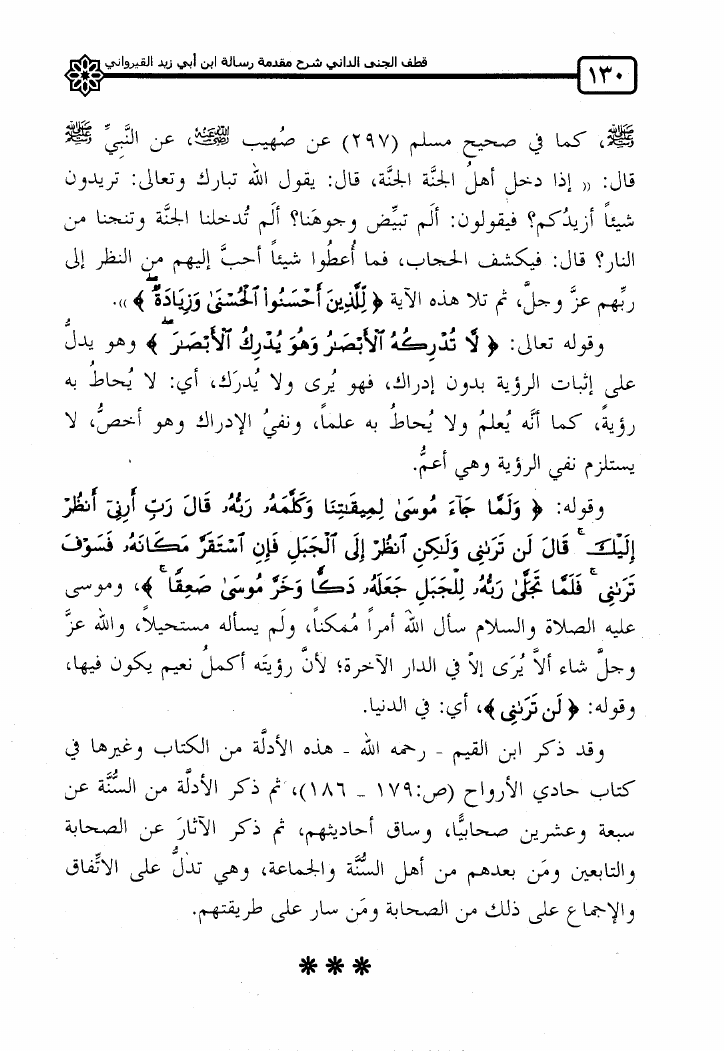 قطف الجنى الداني شرح مقدمة رسالة ابن أبي زيد القيرواني
١٣٠
ﷺ، كما في صحيح مسلم (٢٩٧) عن صُهيب رضي الله عنه، عن النَّبِيِّ ﷺ
قال: « إذا دخل أهلُ الجنَّة الجنَّة، قال: يقول الله تبارك وتعالى: تريدون
شيئاً أزيدُكم؟ فيقولون: ألَم تبيِّض وجوهَنا؟ ألَم تُدخلنا الجنَّة وتنجنا من
النار؟ قال: فيكشف الحجاب، فما أُعطُوا شيئاً أحبَّ إليهم من النظر إلى
ربِّهم عزَّ وجلَّ، ثم تلا هذه الآية ﴿ لِّلَّذِينَ أَحْسَنُوا۟ ٱلْحُسْنَىٰ وَزِيَادَةٌ ۖ ﴾ ».
وقوله تعالى: ﴿ لَّا تُدْرِكُهُ ٱلْأَبْصَـٰرُ وَهُوَ يُدْرِكُ ٱلْأَبْصَـٰرَ ۖ ﴾ وهو يدلُّ
على إثبات الرؤية بدون إدراك، فهو يُرى ولا يُدرَك، أي: لا يُحاطُ به
رؤيةً، كما أنَّه يُعلمُ ولا يُحاطُ به علماً، ونفيُ الإدراك وهو أخصُّ، لا
يستلزم نفي الرؤية وهي أعمُّ.
وقوله: ﴿ وَلَمَّا جَآءَ مُوسَىٰ لِمِيقَـٰتِنَا وَكَلَّمَهُۥ رَبُّهُۥ قَالَ رَبِّ أَرِنِىٓ أَنظُرْ
إِلَيْكَ ۚ قَالَ لَن تَرَىٰنِى وَلَـٰكِنِ ٱنظُرْ إِلَى ٱلْجَبَلِ فَإِنِ ٱسْتَقَرَّ مَكَانَهُۥ فَسَوْفَ
تَرَىٰنِى ۚ فَلَمَّا تَجَلَّىٰ رَبُّهُۥ لِلْجَبَلِ جَعَلَهُۥ دَكًّا وَخَرَّ مُوسَىٰ صَعِقًا ۚ ﴾، وموسى
عليه الصلاة والسلام سأل الله أمراً مُمكناً، ولَم يسأله مستحيلاً، والله عزَّ
وجلَّ شاء ألاَّ يُرَى إلاَّ في الدار الآخرة؛ لأنَّ رؤيتَه أكملُ نعيم يكون فيها،
وقوله: ﴿ لَن تَرَىٰنِى ﴾، أي: في الدنيا.
وقد ذكر ابن القيم ـ رحمه الله ـ هذه الأدلَّة من الكتاب وغيرها في
كتاب حادي الأرواح (ص:١٧٩ ـ ١٨٦)، ثم ذكر الأدلَّة من السُّنَّة عن
سبعة وعشرين صحابيًّا، وساق أحاديثهم، ثم ذكر الآثارَ عن الصحابة
والتابعين ومَن بعدهم من أهل السُّنَّة والجماعة، وهي تدلُّ على الاتِّفاق
والإجماع على ذلك من الصحابة ومَن سار على طريقتهم.
***